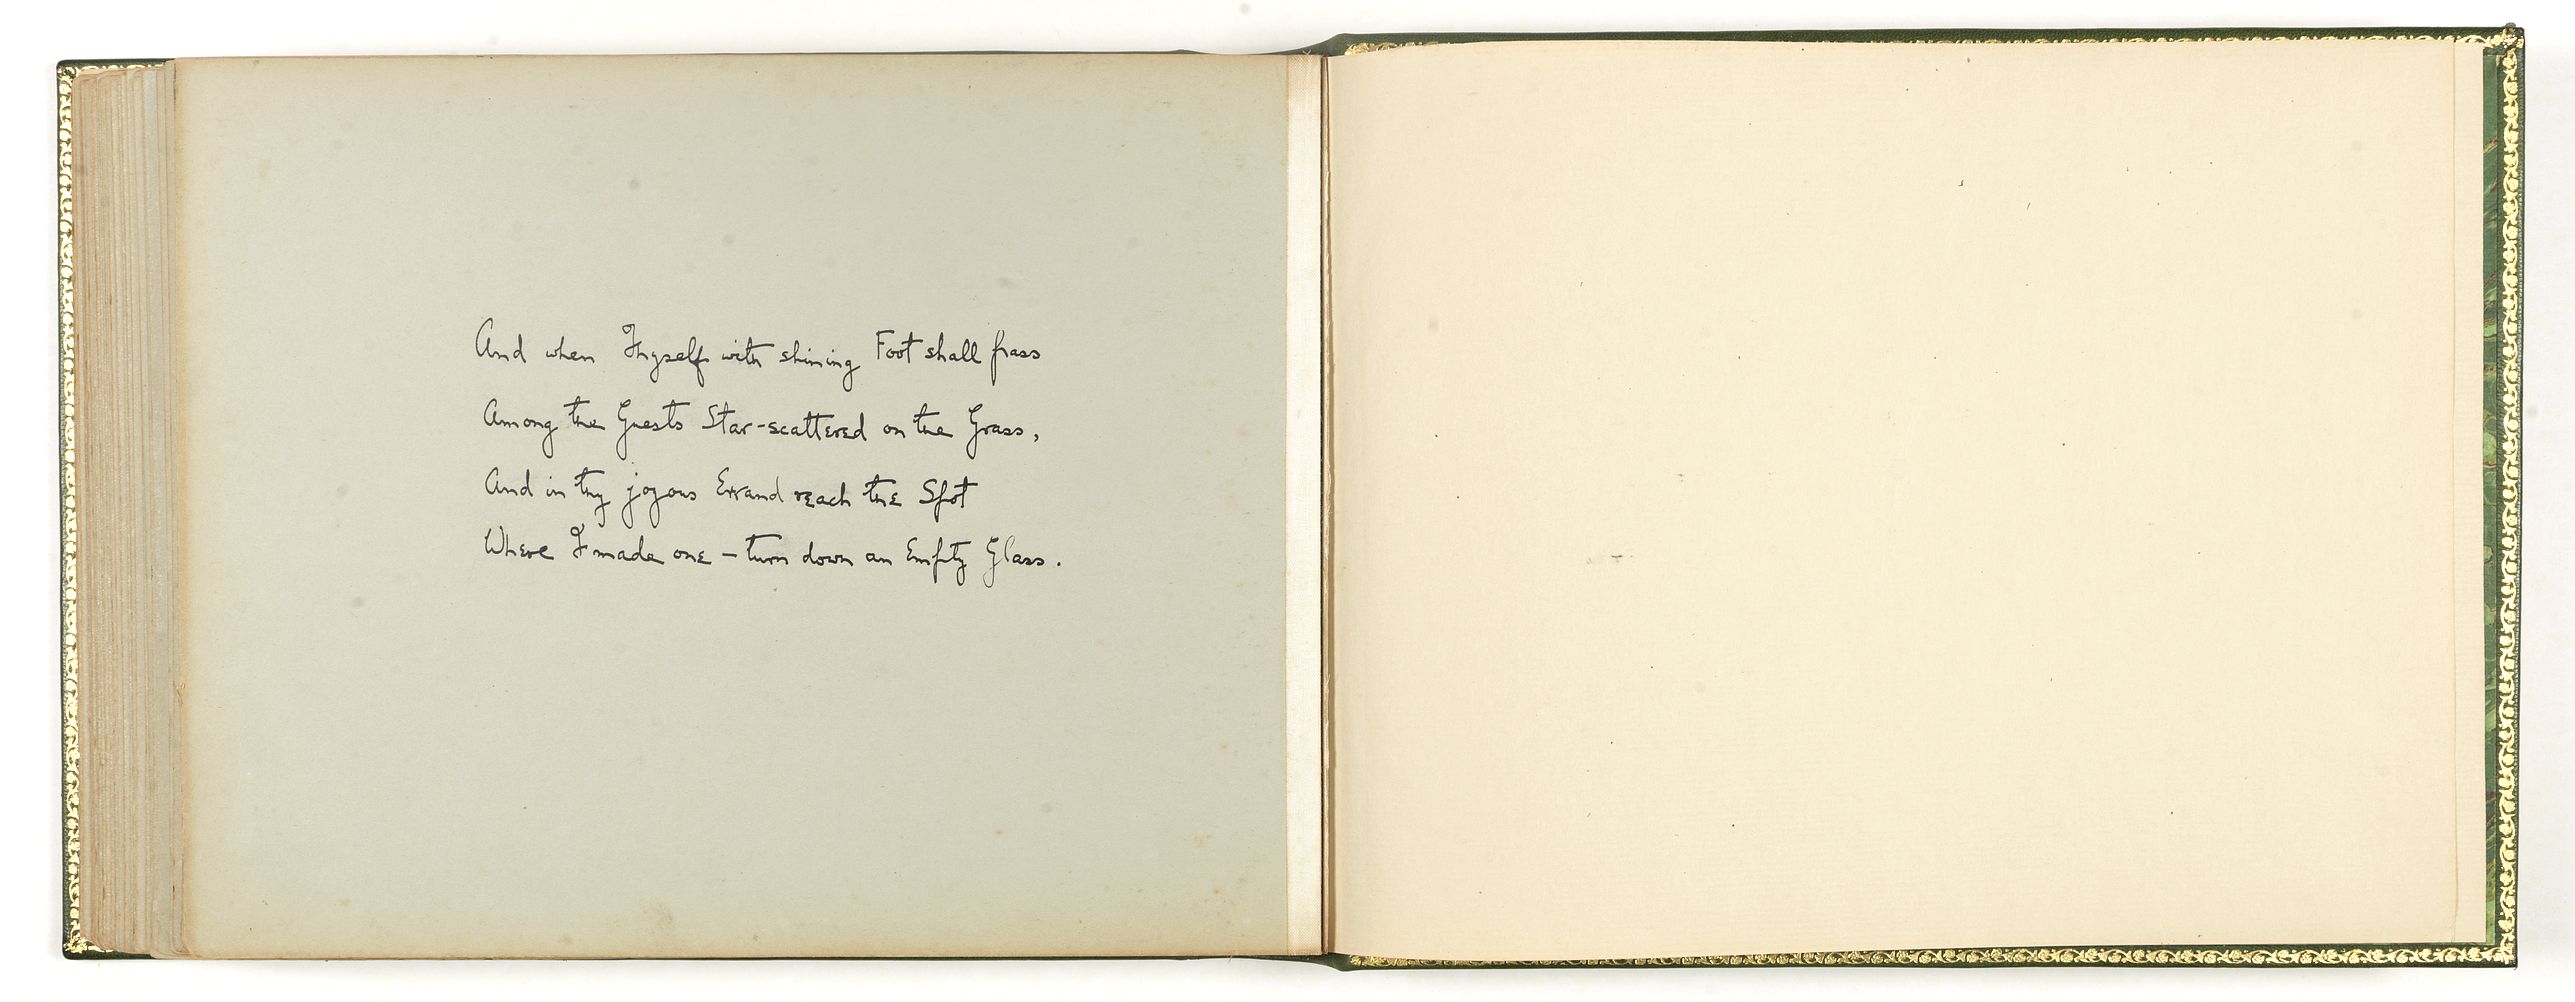 And when Thyself with shining Foot shall pass
Among the Guests Star-scattered on the Grass,
And in thy joyous Errand reach the Spot
Where I made one – turn down an Empty Glass.